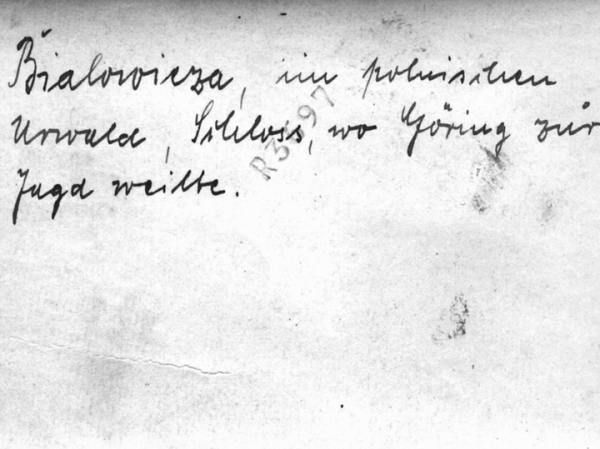 Bialowicza, im polnischen
Urwald, Schloss, wo Göring zur
Jagd weilte.